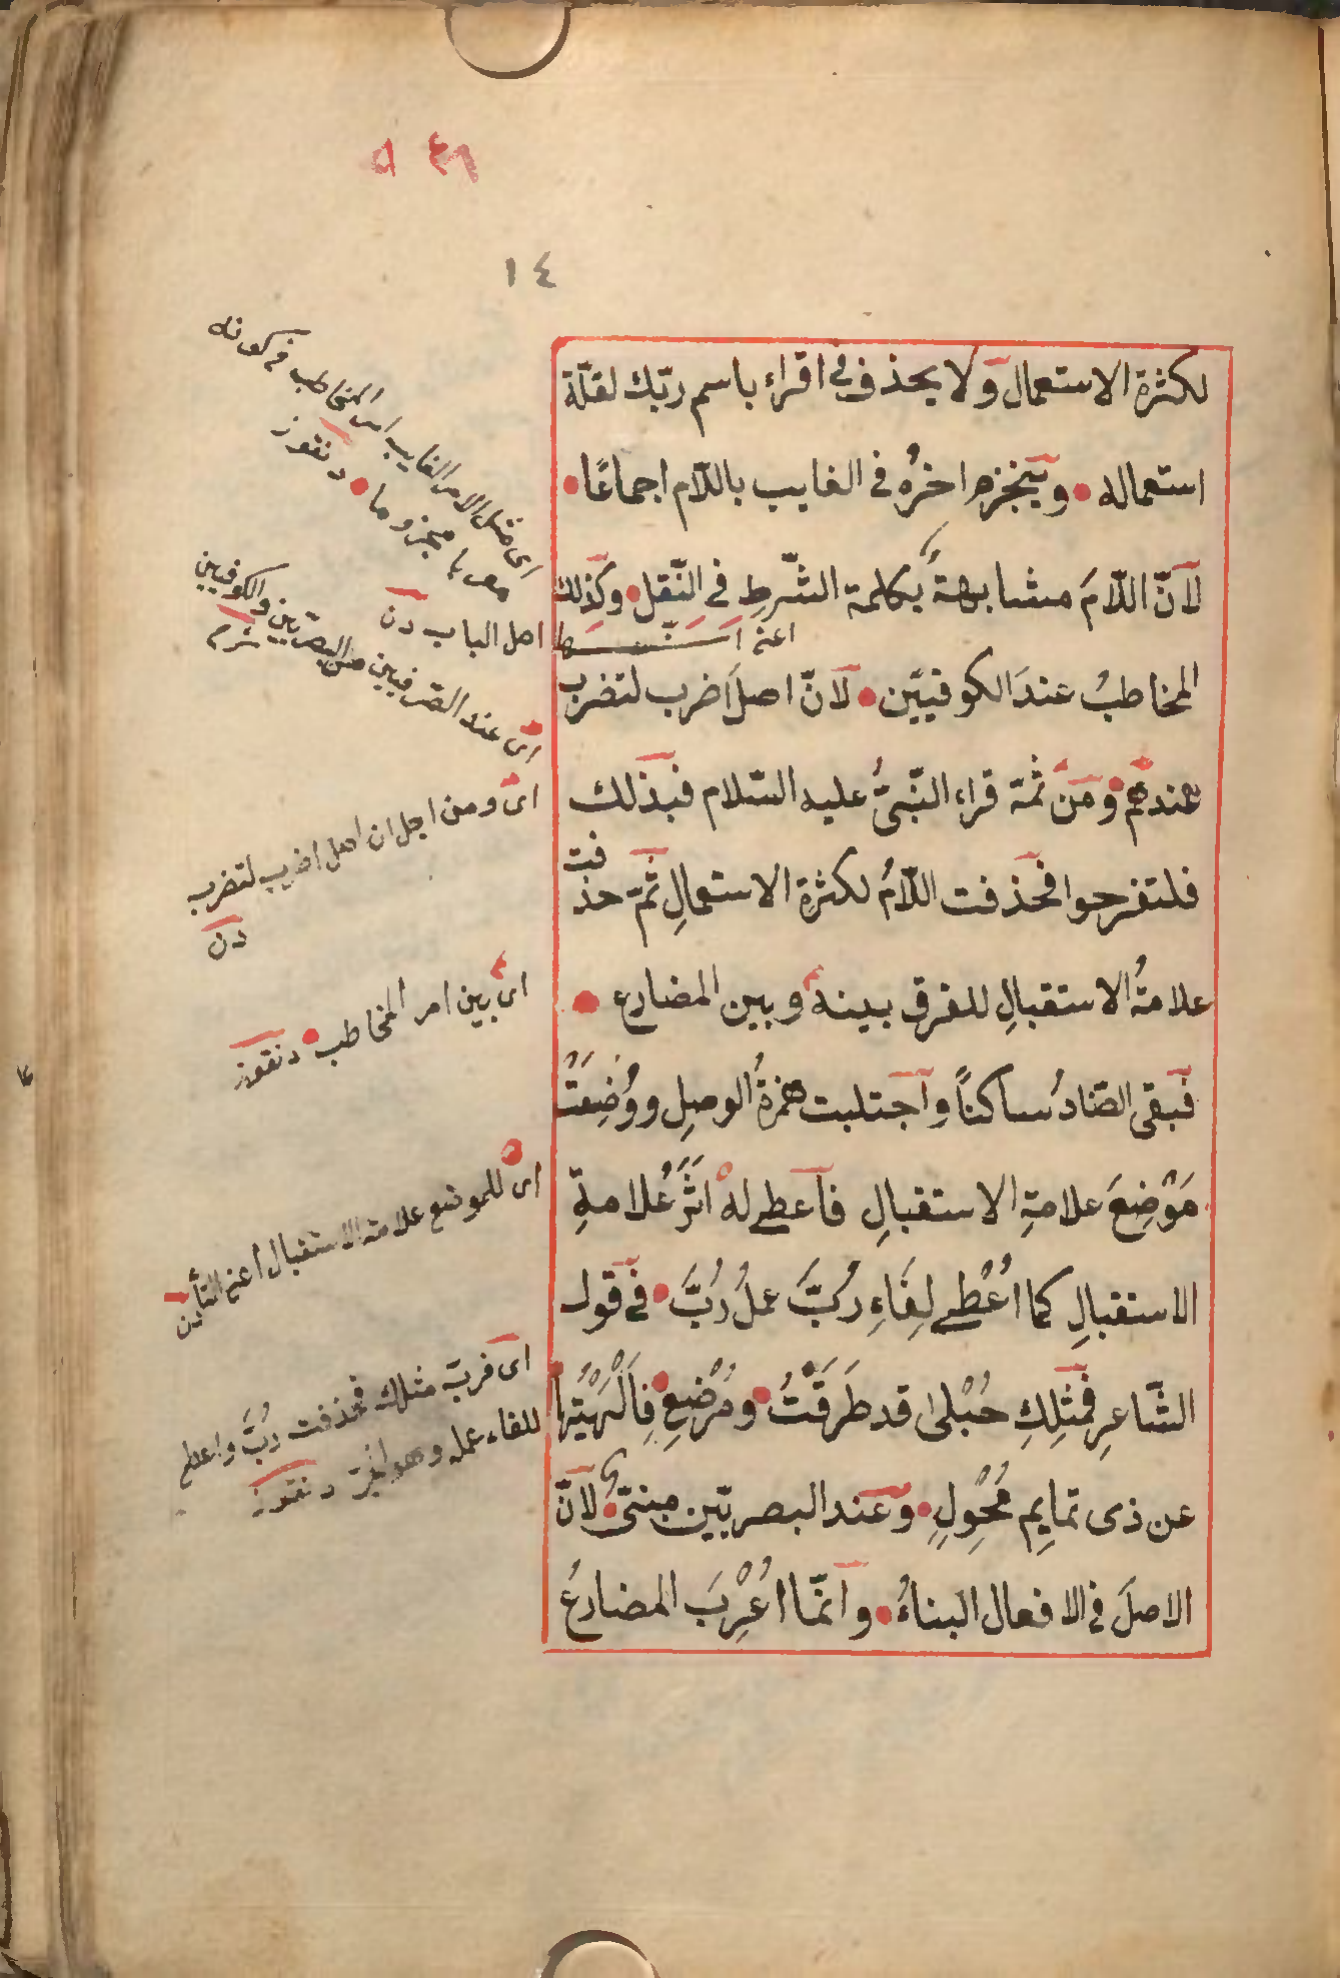 ٤٦ ٥
١٤
لكثرة الاستعمال ولا يحذف في اقراء باسم ربّك لقلّة
استعماله • وينجزم اخرُه في الغايب باللّام اجماعًا •
لانّ اللّامَ مشابهةٌ بكلمة الشّرطِ في النّقل • وكذلك
المخاطبُ عندَ الكوفييّن • لانّ اصلَ اضرب لتضرب
عندهم ومن ثمّة قراء النّبىُّ عليه السّلام فبذلك
فلتفرحوا فحذفت اللّامُ لكثرةِ الاستعمالِ ثمّ حذفت
علامةُ الاستقبالِ للفرق بينه وبين المضارع •
فبقى الضّادُ ساكنًا واجتلبت همزةُ الوصلِ ووُضِعَتْ
مَوْضِعَ علامةِ الاستقبالِ فاعطى لهُ اثَرَ علامةِ
الاستقبالِ كما اُعْطِى لِفَاءِ رُبَّ عملُ رُبَّ • فى قول
الشّاعرِ فمثلِكِ حُبْلىٰ قد طَرَقْتُ • ومُرْضِعٍ فَاَلْهَيْتُها
عن ذى تمايِم مُحْوِلٍ • وعند البصريّين مبنىّ • لانّ
الاصلَ في الافعال البناءُ • وانّما اُعْرِبَ المضارعُ
اى مثل الامر الغايب امر المخاطب في كونه
معربا مجزوما • دنقوز
اصل الباب دن
اى عند الصّرفيين من البصريّين والكوفيين
اى ومن اجل ان اصل اضرب لتضرب
دن
اى بين امر المخاطب • دنقوز
اى للموضع علامة الاستقبال اعنى التاء
دن
اى فربّ مثلك فحذفت رُبَّ واعطى
للفاء عمله وهو الجرّ دنقوز